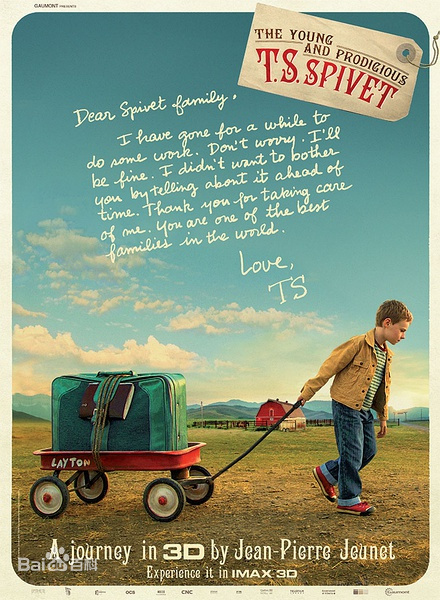 GAUMONT PRESENTS
THE YOUNG
AND PRODIGIOUS
T.S. SPIVET
Dear Spivet family,
I have gone for a while to
do some work. Don't worry. I'll
be fine. I didn't want to bother
you by telling about it ahead of
time. Thank you for taking care
of me. You are one of the best
families in the world.
Love,
TS
LAYTON
A journey in 3D by Jean-Pierre Jeunet
Experience it in IMAX 3D
Bai百科
CNC
Gaumont